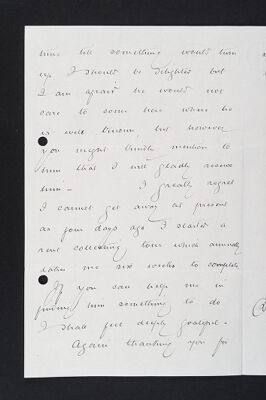 time till something would turn
up I should be delighted but
I am afraid he would not
care to come here where he
is well known, but however
you might kindly mention to
him that I will gladly receive
him - I greatly regret
I cannot get away at present
as four days ago I started a
rent collecting tour which annually
takes me six weeks to complete
If you can help me in
finding him something to do
I shall feel deeply grateful -
Again thanking you for